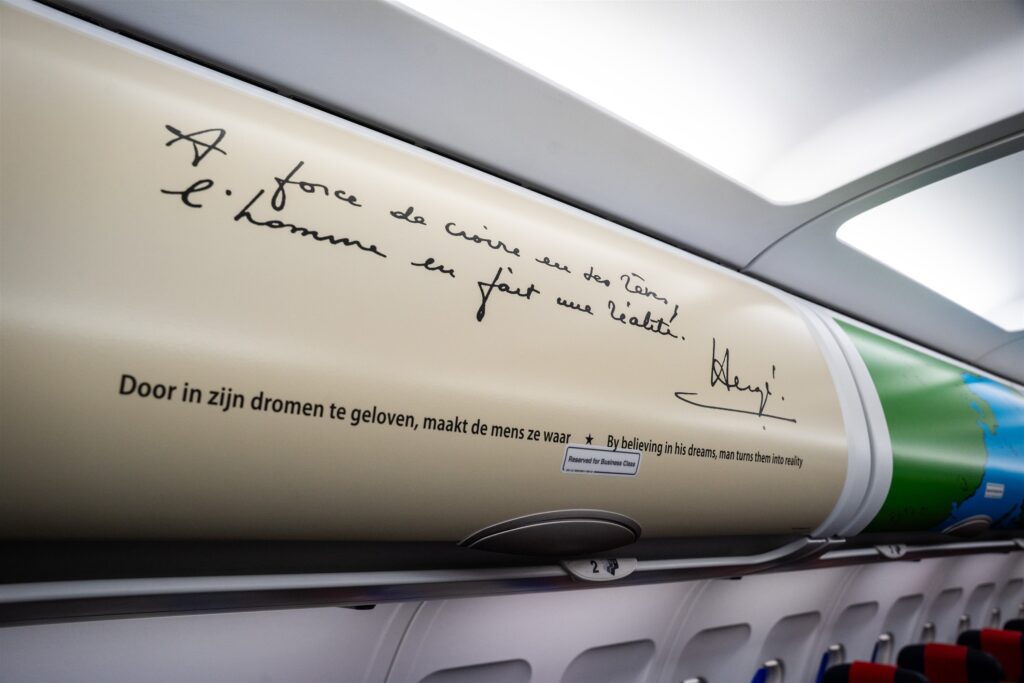 A force de croire en ses rêves,
l'homme en fait une réalité.
Hergé.
Door in zijn dromen te geloven, maakt de mens ze waar ★ By believing in his dreams, man turns them into reality
Reserved for Business Class
2